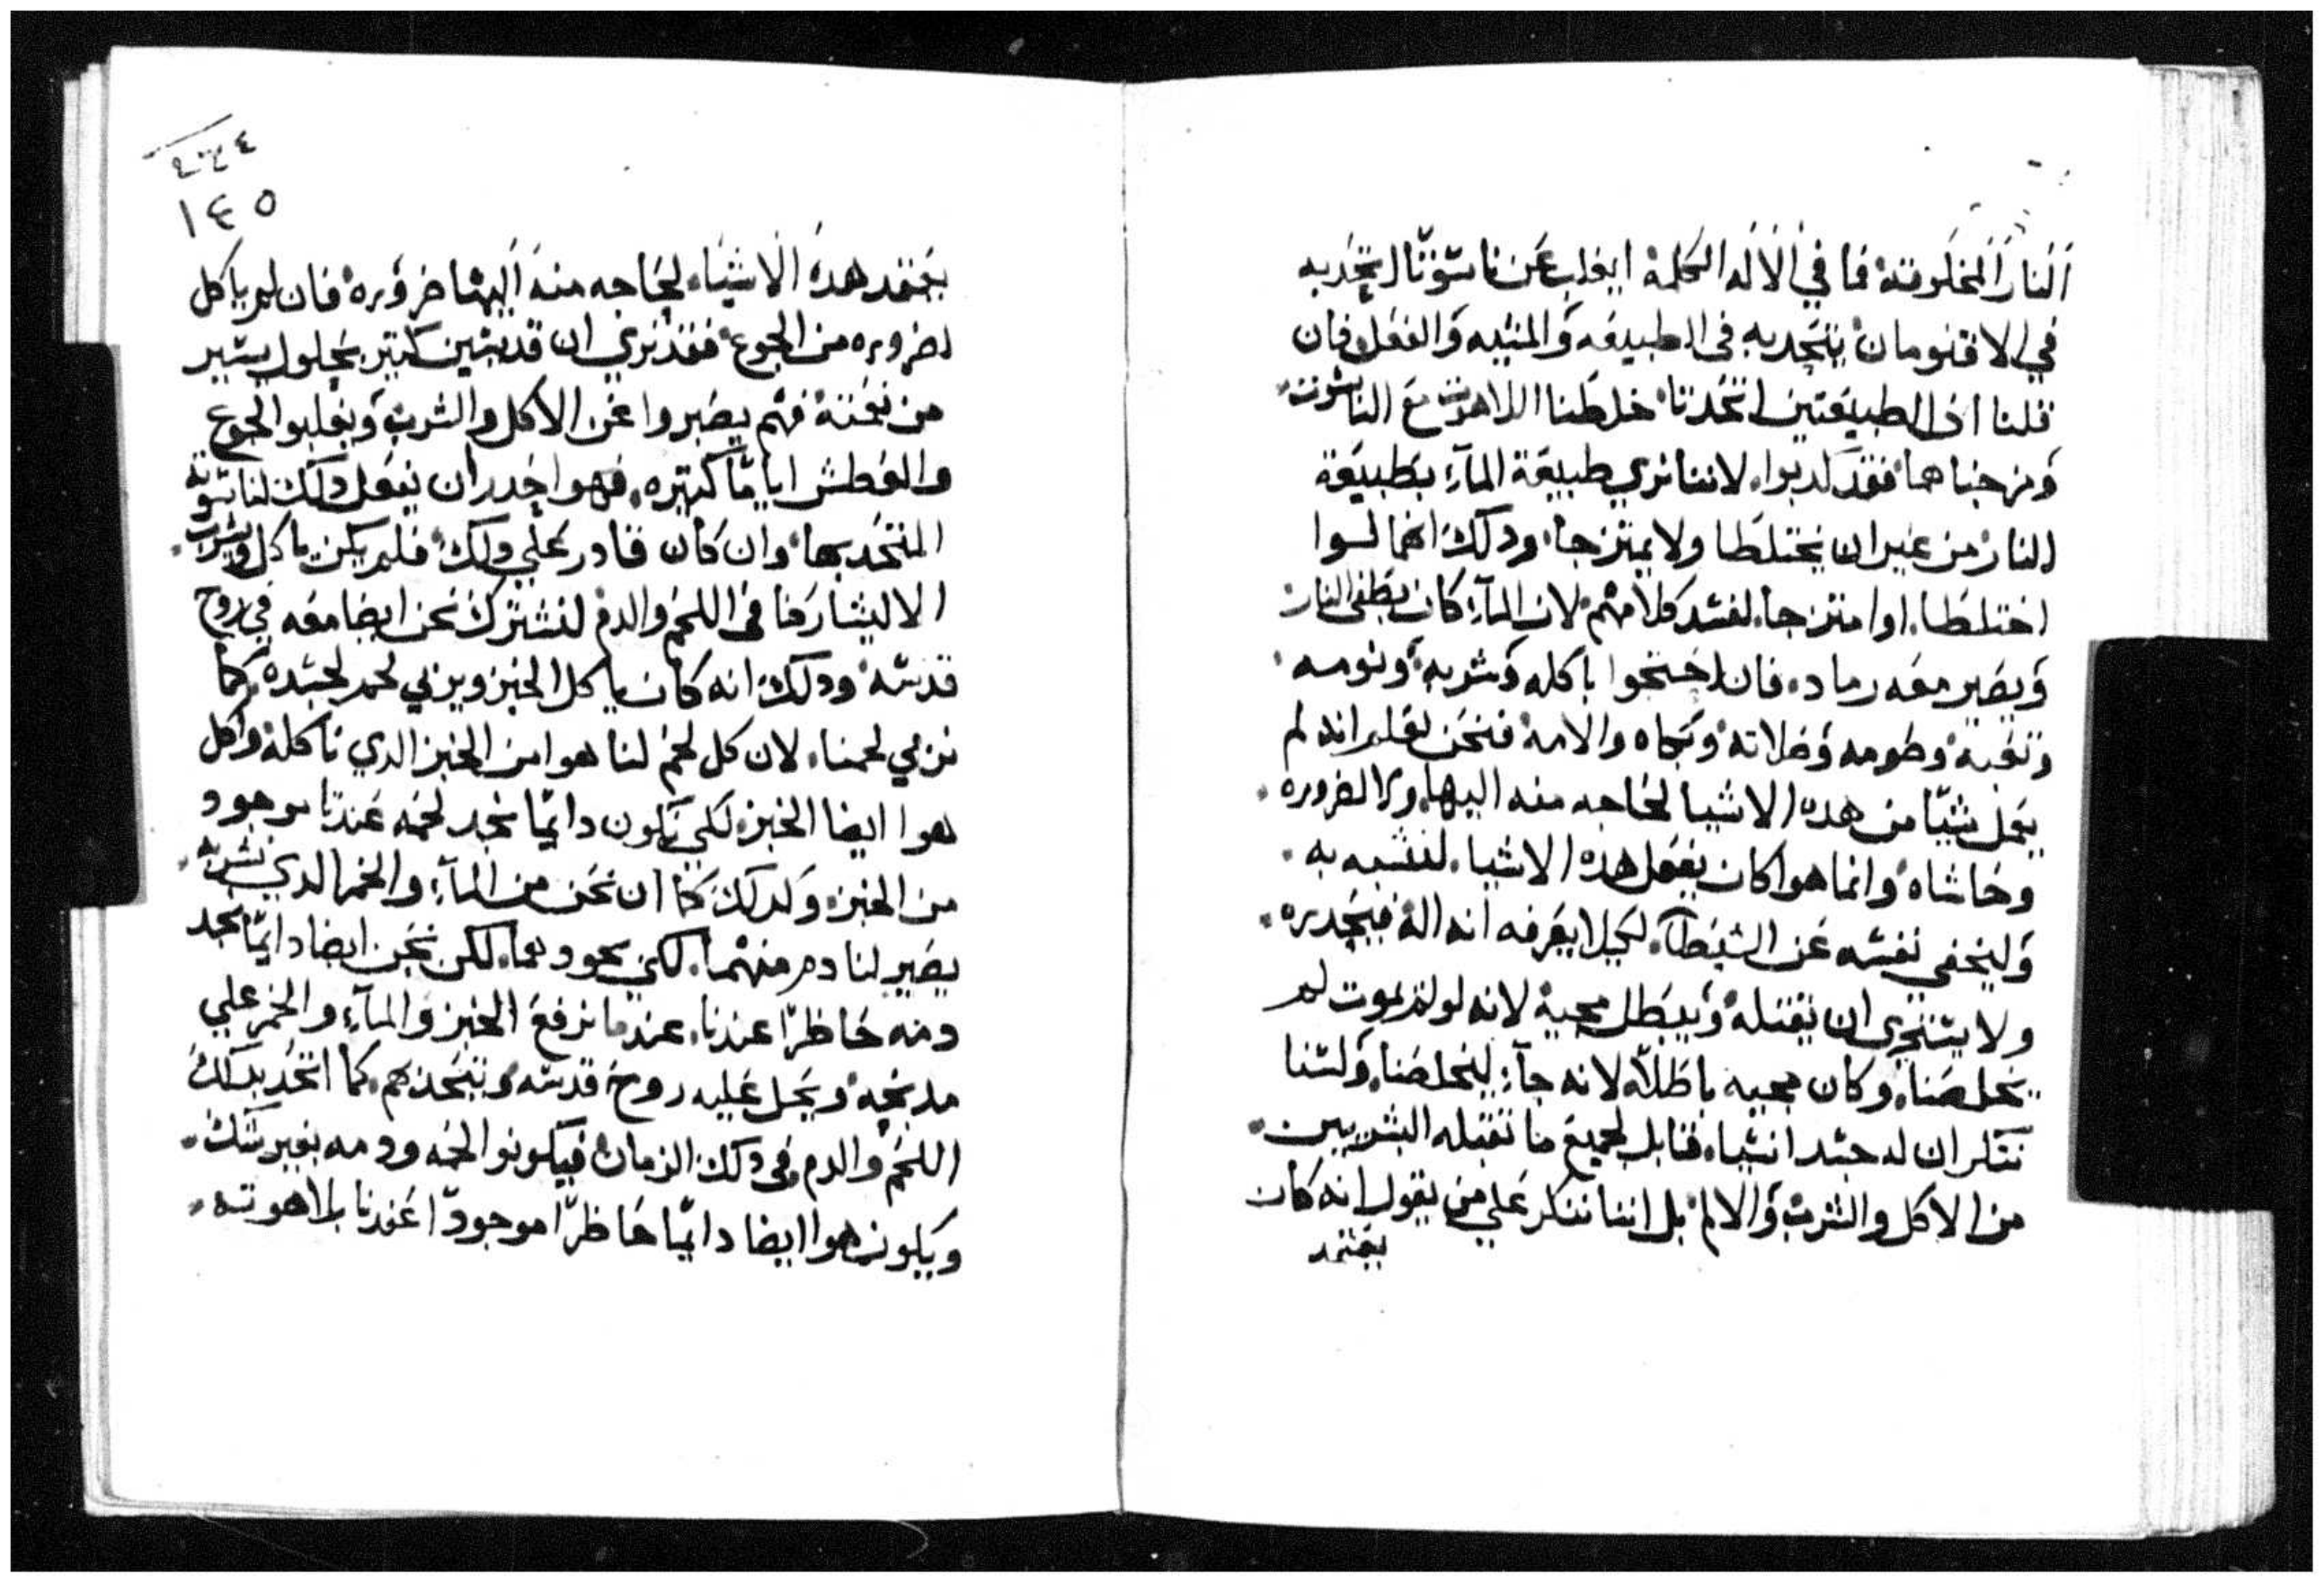 النار المخلوقة فما في الاله الكلمة ايغلب عن ناسوتنا المتحد به
في الاقنومان يتحد به في الطبيعه والمشيه والفعل فان
قلنا ان الطبيعتين اتحدتا خلطنا اللاهوت مع الناسوت
ومزجناهما فقد كدبوا لاننا نري طبيعة المآء بطبيعة
النار من غير ان يختلطا ولا يمتزجا ودلك انهما لوا
اختلطا اوا متزجا لفسد كلامهم لان المآء كان يطفى النار
ويصير معه رماد فان احتجوا باكله وشربه ونومه
وتعبه وصومه وصلاته وبكاه والامه فنحن نعلم انه لم
يعمل شيا من هده الاشيا لحاجه منه اليها ولا لضروره
وحاشاه وانما هوا كان يفعل هده الاشيا لنتشبه به
وليخفى نفسه عن الشيطان لكيلا يعرفه انه اله فيحدره
ولا يستجرى ان يقتله ويبطل مجيه لانه لو لم يموت لم
يخلصنا وكان مجيه باطلاً لانه جآء ليخلصنا ولسنا
ننكر ان له جسد انسيا قابل لجميع ما تقبله البشريين
من الاكل والشرب والالم بل اننا ننكر علي من يقول انه كان
يعتمد
١٤٥
يعتمد هده الاشياء لحاجه منه اليها ضروره فان لم ياكل
لضروره من الجوع فقد نري ان قديسين كتير بحلول يسير
من نعمته فهم يصبروا عن الاكل والشرب ويغلبو الجوع
والعطش اياما كتيره فهوا اجدر ان يفعل دلك لناسوته
المتحد بها وان كان قادر علي دلك فلم يكن ياكل ويشرب
الا ليشاركنا في اللحم والدم لنشترك نحن ايضا معه في روح
قدسه ودلك انه كان ياكل الخبز ويربي لحم لجسده كما
نربي لحمنا لان كل لحم لنا هوا من الخبز الدي ناكله واكل
هوا ايضا الخبز لكي نكون دايما نجد لحمه عندنا موجود
من الخبز وكدلك كما ان نحن من المآء والخمر الدي نشربه
يصير لنا دم منهما لكن نحن ايضا دايما نجد
دمه حاظرا عندنا عندما نرفع الخبز والمآء والخمر علي
مدبحه ويحل عليه روح قدسه ويتحد بهم كما اتحد بدلك
اللحم والدم في دلك الزمان فيكونوا لحمه ودمه بغير شك
ويكون هوا ايضا دايما حاظرا موجودا عندنا بلاهوته